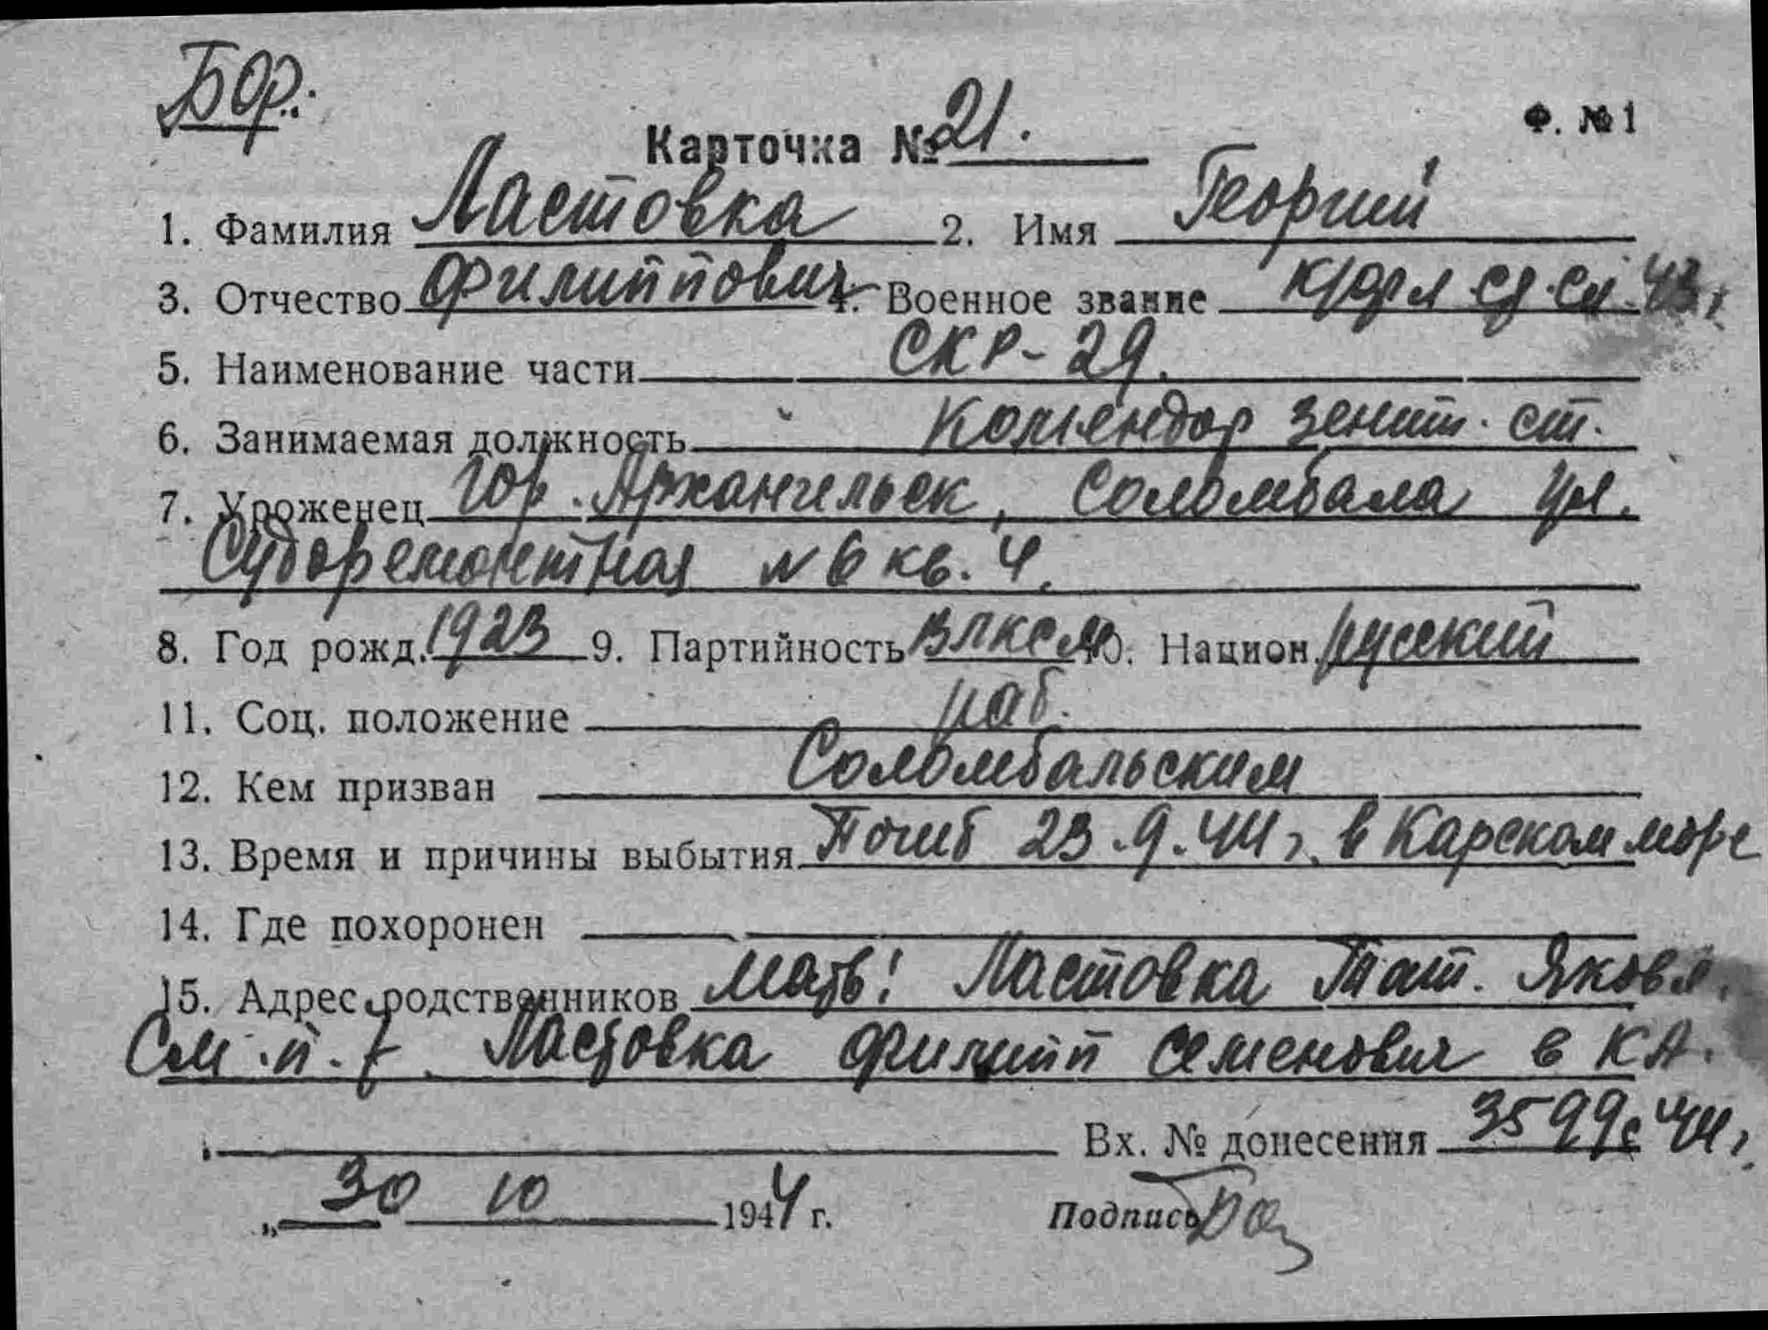 Бор.
Карточка № 21. Ф. № 1
1. Фамилия Ластовка 2. Имя Георгий
3. Отчество Филиппович 4. Военное звание к/фл сл. 43 г.
5. Наименование части СКР-29.
6. Занимаемая должность Комендор зенит. ст.
7. Уроженец гор. Архангельск, Соломбала ул.
Судоремонтная № 6 кв. 4.
8. Год рожд. 1923 9. Партийность ВЛКСМ 10. Национ. русский
11. Соц. положение раб.
12. Кем призван Соломбальским
13. Время и причины выбытия Погиб 23.9.44 г. в Карском море
14. Где похоронен
15. Адрес родственников Мать: Ластовка Тат. Яковл.
См. п. 7. Ластовка Филипп Семенович в КА.
Вх. № донесения 3599с 44 г.
„30 10 1944 г. Подпись